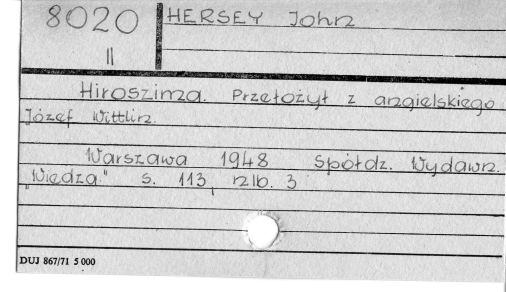 8020
II
HERSEY John
Hiroszima. Przełożył z angielskiego
Józef Wittlin.
Warszawa 1948 Spółdz. Wydawn.
"Wiedza" s. 113, nlb. 3
DUJ 867/71 5 000